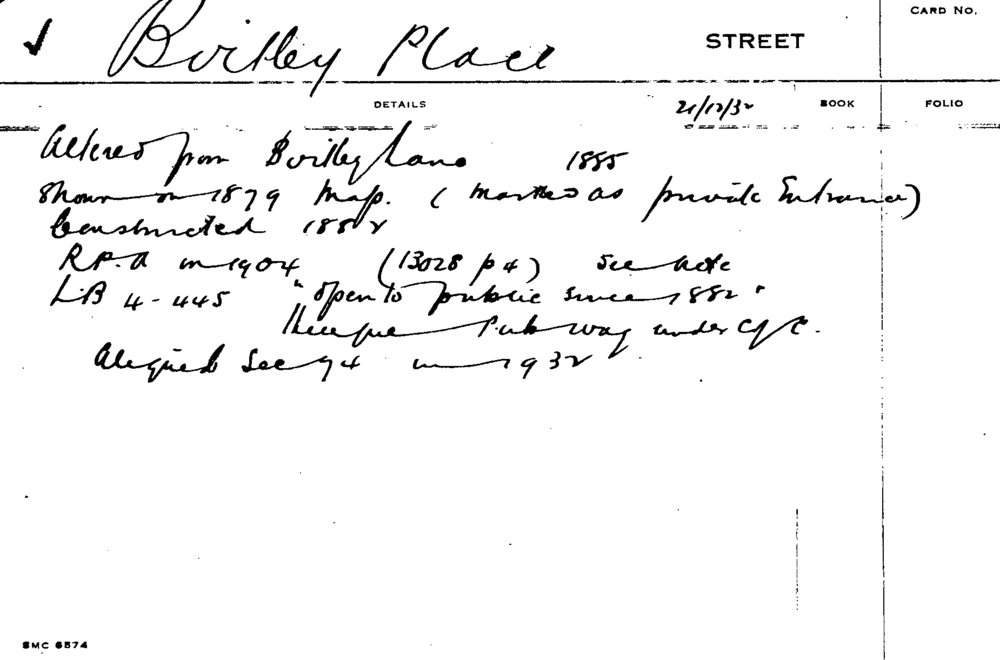 ✓ Birtley Place STREET CARD NO.
DETAILS 21/12/32 BOOK FOLIO
Altered from Birtley Lane 1885
Shown on 1879 Map. (Marked as private Entrance)
Constructed 1882
R.P.A in 1904 (13028 p 4) See note
LB 4-445 "open to public since 1882"
Therefore Pub way under
Aligned Sec 94 in 1932
SMC 6574